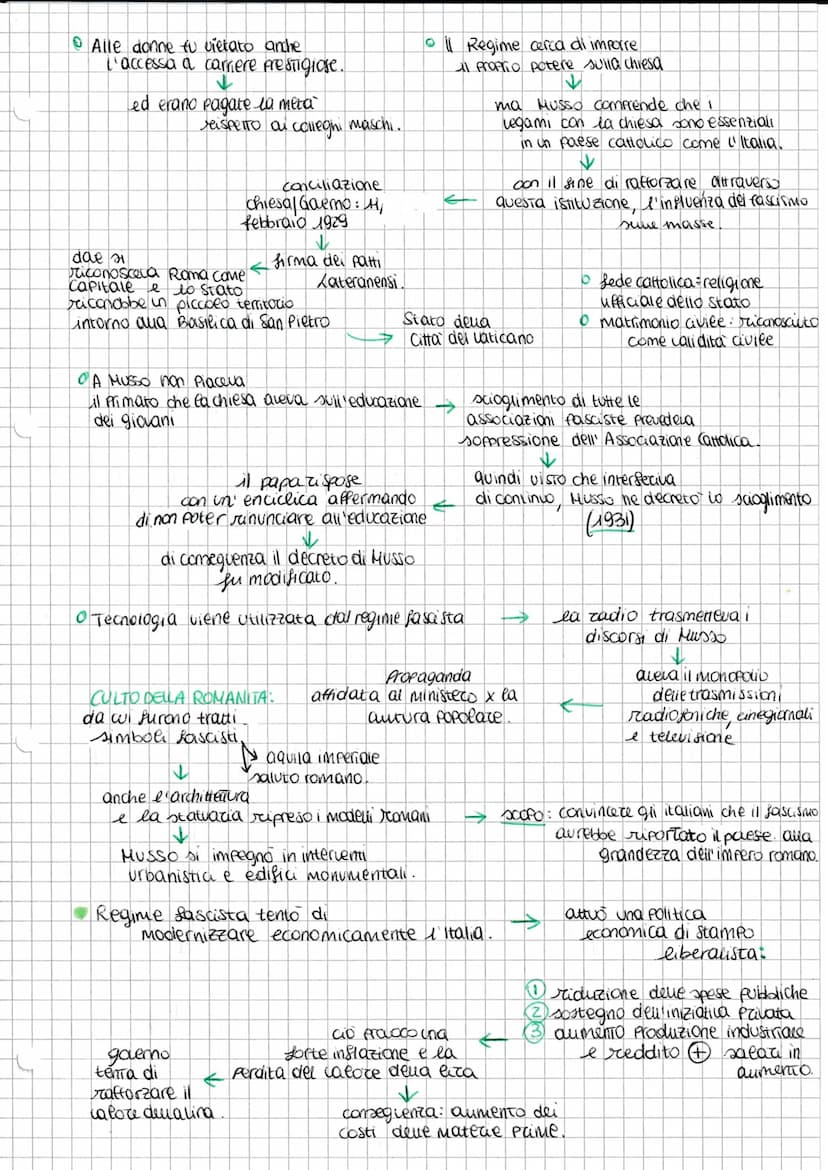 Alle donne fu vietato anche
l'accesso a carriere prestigiose.
↓
ed erano pagate la metà
rispetto ai colleghi maschi.
Il Regime cerca di imporre
il proprio potere sulla chiesa
↓
ma Musso comprende che i
legami con la chiesa sono essenziali
in un paese cattolico come l'Italia.
↓
con il fine di rafforzare attraverso
questa istituzione, l'influenza del fascismo
sulle masse.
←
conciliazione
chiesa/Governo: 11,
febbraio 1929
↓
firma dei patti
Lateranensi.
←
dove si
riconosceva Roma come
capitale e lo stato
riconobbe un piccolo territorio
intorno alla Basilica di San Pietro
→
Stato della
Città del Vaticano
fede cattolica=religione
ufficiale dello stato
matrimonio civile: riconosciuto
come validità civile
A Musso non piaceva
il primato che la chiesa aveva sull'educazione
dei giovani
→
scioglimento di tutte le
associazioni fasciste prevedeva
soppressione dell'Associazione Cattolica.
↓
quindi visto che interferiva
di continuo, Musso ne decretò lo scioglimento
(1931)
←
il papa rispose
con un'enciclica affermando
di non poter rinunciare all'educazione
↓
di conseguenza il decreto di Musso
fu modificato.
Tecnologia viene utilizzata dal regime fascista
→
la radio trasmetteva i
discorsi di Musso
↓
aveva il monopolio
delle trasmissioni
radiofoniche, cinegiornali
e televisione
←
Propaganda
affidata al ministero x la
cultura popolare.
CULTO DELLA ROMANITÀ:
da cui furono tratti
simboli fascisti
aquila imperiale
saluto romano.
↓
anche l'architettura
e la statuaria ripreso i modelli romani
→
scopo: convincere gli italiani che il fascismo
avrebbe riportato il paese alla
grandezza dell'impero romano.
↓
Musso si impegnò in interventi
urbanistici e edifici monumentali.
Regime fascista tentò di
modernizzare economicamente l'Italia.
→
attuò una politica
economica di stampo
liberalista:
1 riduzione delle spese pubbliche
2 sostegno dell'iniziativa privata
3 aumento produzione industriale
e reddito + salari in
aumento.
←
ciò provocò una
forte inflazione e la
perdita del valore della lira
←
governo
tenta di
rafforzare il
valore della lira.
↓
conseguenza: aumento dei
costi delle materie prime.